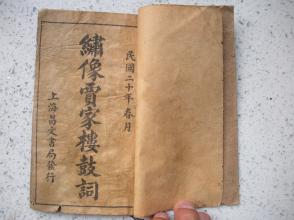 民國二十年春月
繡像賈家樓鼓詞
上海昌文書局發行